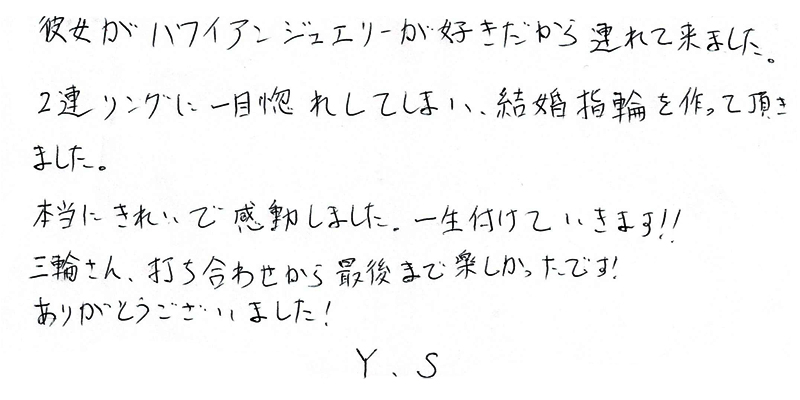 彼女がハワイアンジュエリーが好きだから連れて来ました。
2連リングに一目惚れしてしまい、結婚指輪を作って頂き
ました。
本当にきれいで感動しました。一生付けていきます!!
三輪さん、打ち合わせから最後まで楽しかったです!
ありがとうございました!
Y.S